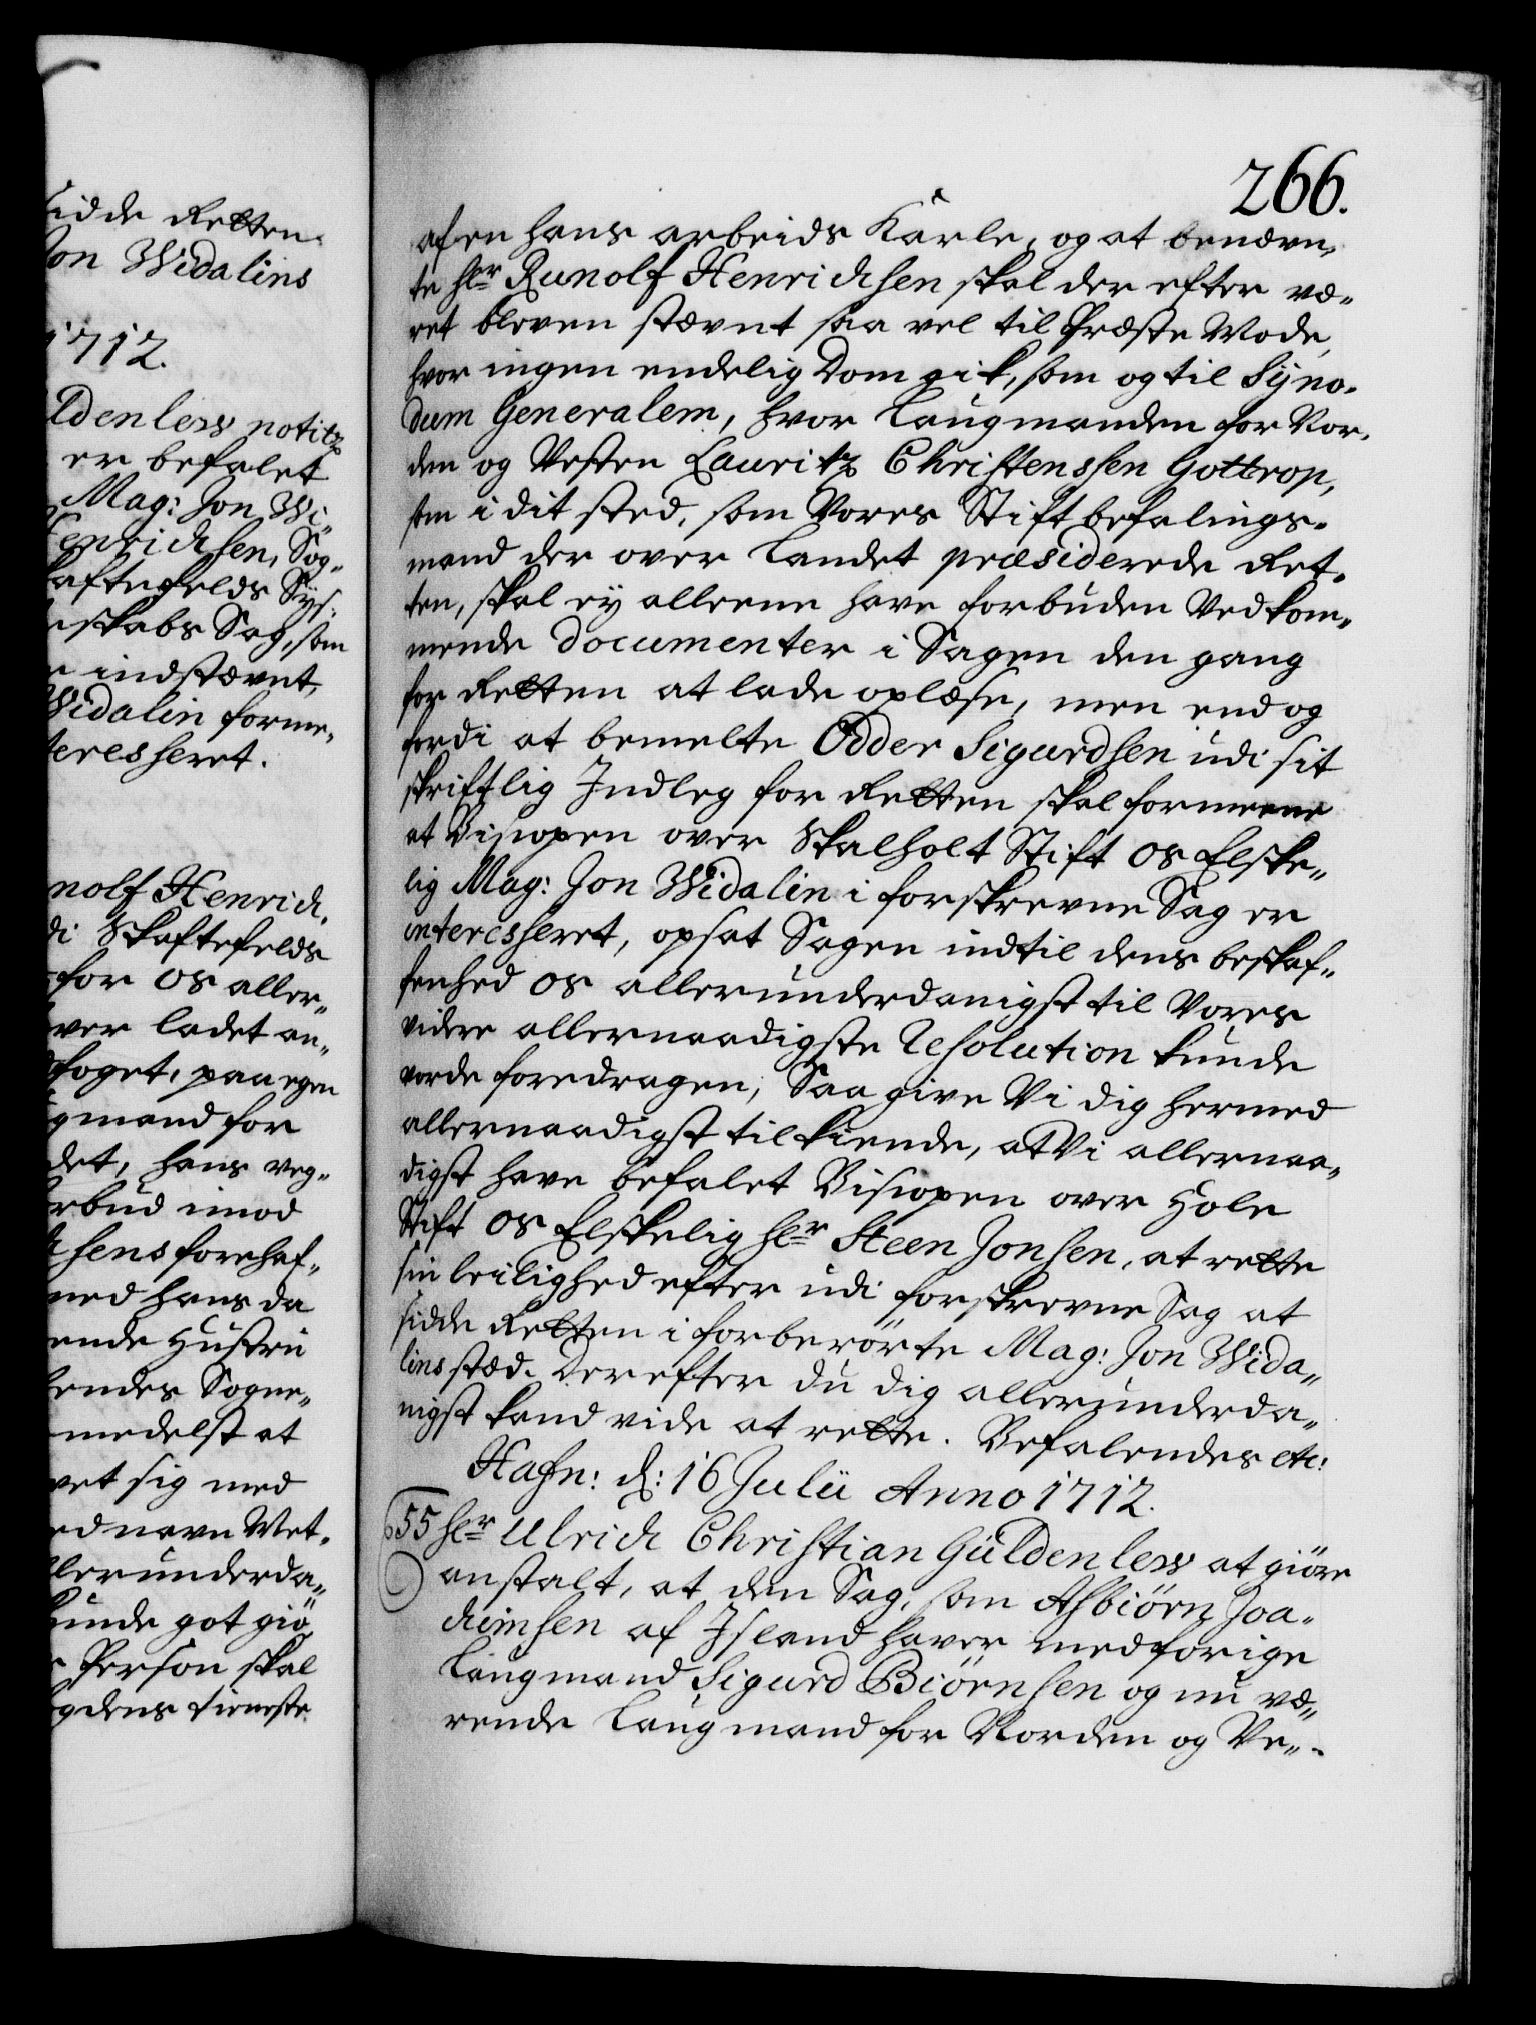 sidde Retten
Jon Widalins
1712.
ldenlew notitz
er befalet
Mag: Jon Wi„
Henrichsen, Sog„
kaftefelds Sys„
skabs Sag, som
indstævnt,
Widalin forme„
teresseret.
nolf Henrich„
di Skaftefelds
for os aller„
ver ladet an„
foget, paa egen
gmand for
det, hans veg„
rbud imod
hsens forehaf„
med hans da
ende Hustru
endes Sogne„
medelst at
vet sig med
ed navn Wet„
llerunderda„
kunde got giö
Person skal
gdens tieneste
266.
af en hans arbeids Karle, og at benævn„
te hr Runolf Henrichsen skal der efter væ„
ret bleven stævnt saa vel til Præste Mode,
hvor ingen endelig Dom gik, som og til Syno„
dum Generalem, hvor Laugmanden for Nor„
den og Vesten Lauritz Christenssen Gottrop,
som i dit sted, som Vores Stiftbefalings„
mand der over Landet præsiderede Ret„
ten, skal ey alleene have forbuden Vedkom„
mende documenter i Sagen den gang
for Retten at lade oplæse, men end og
fordi at bemelte Odder Sigurdsen udi sit
skriftlig Indleg for Retten skal formeene
at Bispen over Skalholt Stift os Elske„
lig Mag: Jon Widalin i forskrevne Sag er
interesseret, opsat Sagen indtil dens beskaf„
fenhed os allerunderdanigst til Vores
videre allernaadigste Resolution kunde
vorde foredragen; Saa give Vi dig hermed
allernaadigst tilkiende, at Vi allernaa„
digst have befalet Bispen over Hole
Stift os Elskelig hr Steen Jonsen, at rette
sin leilighed efter udi forskrevne Sag at
sidde Retten i forberörte Mag: Jon Wida„
lins stæd. Derefter du dig allerunderda„
nigst kand vide at rette. Befalendes etc:
Hafn: d: 16 Julii Anno 1712.
55 hr Ulrich Christian Güldenlew at giöre
anstalt, at den Sag, som Asbiörn Joa„
chimsen af Island haver med forige
Laugmand Sigurd Biörnsen og nu væ„
rende Laugmand for Norden og Ve„